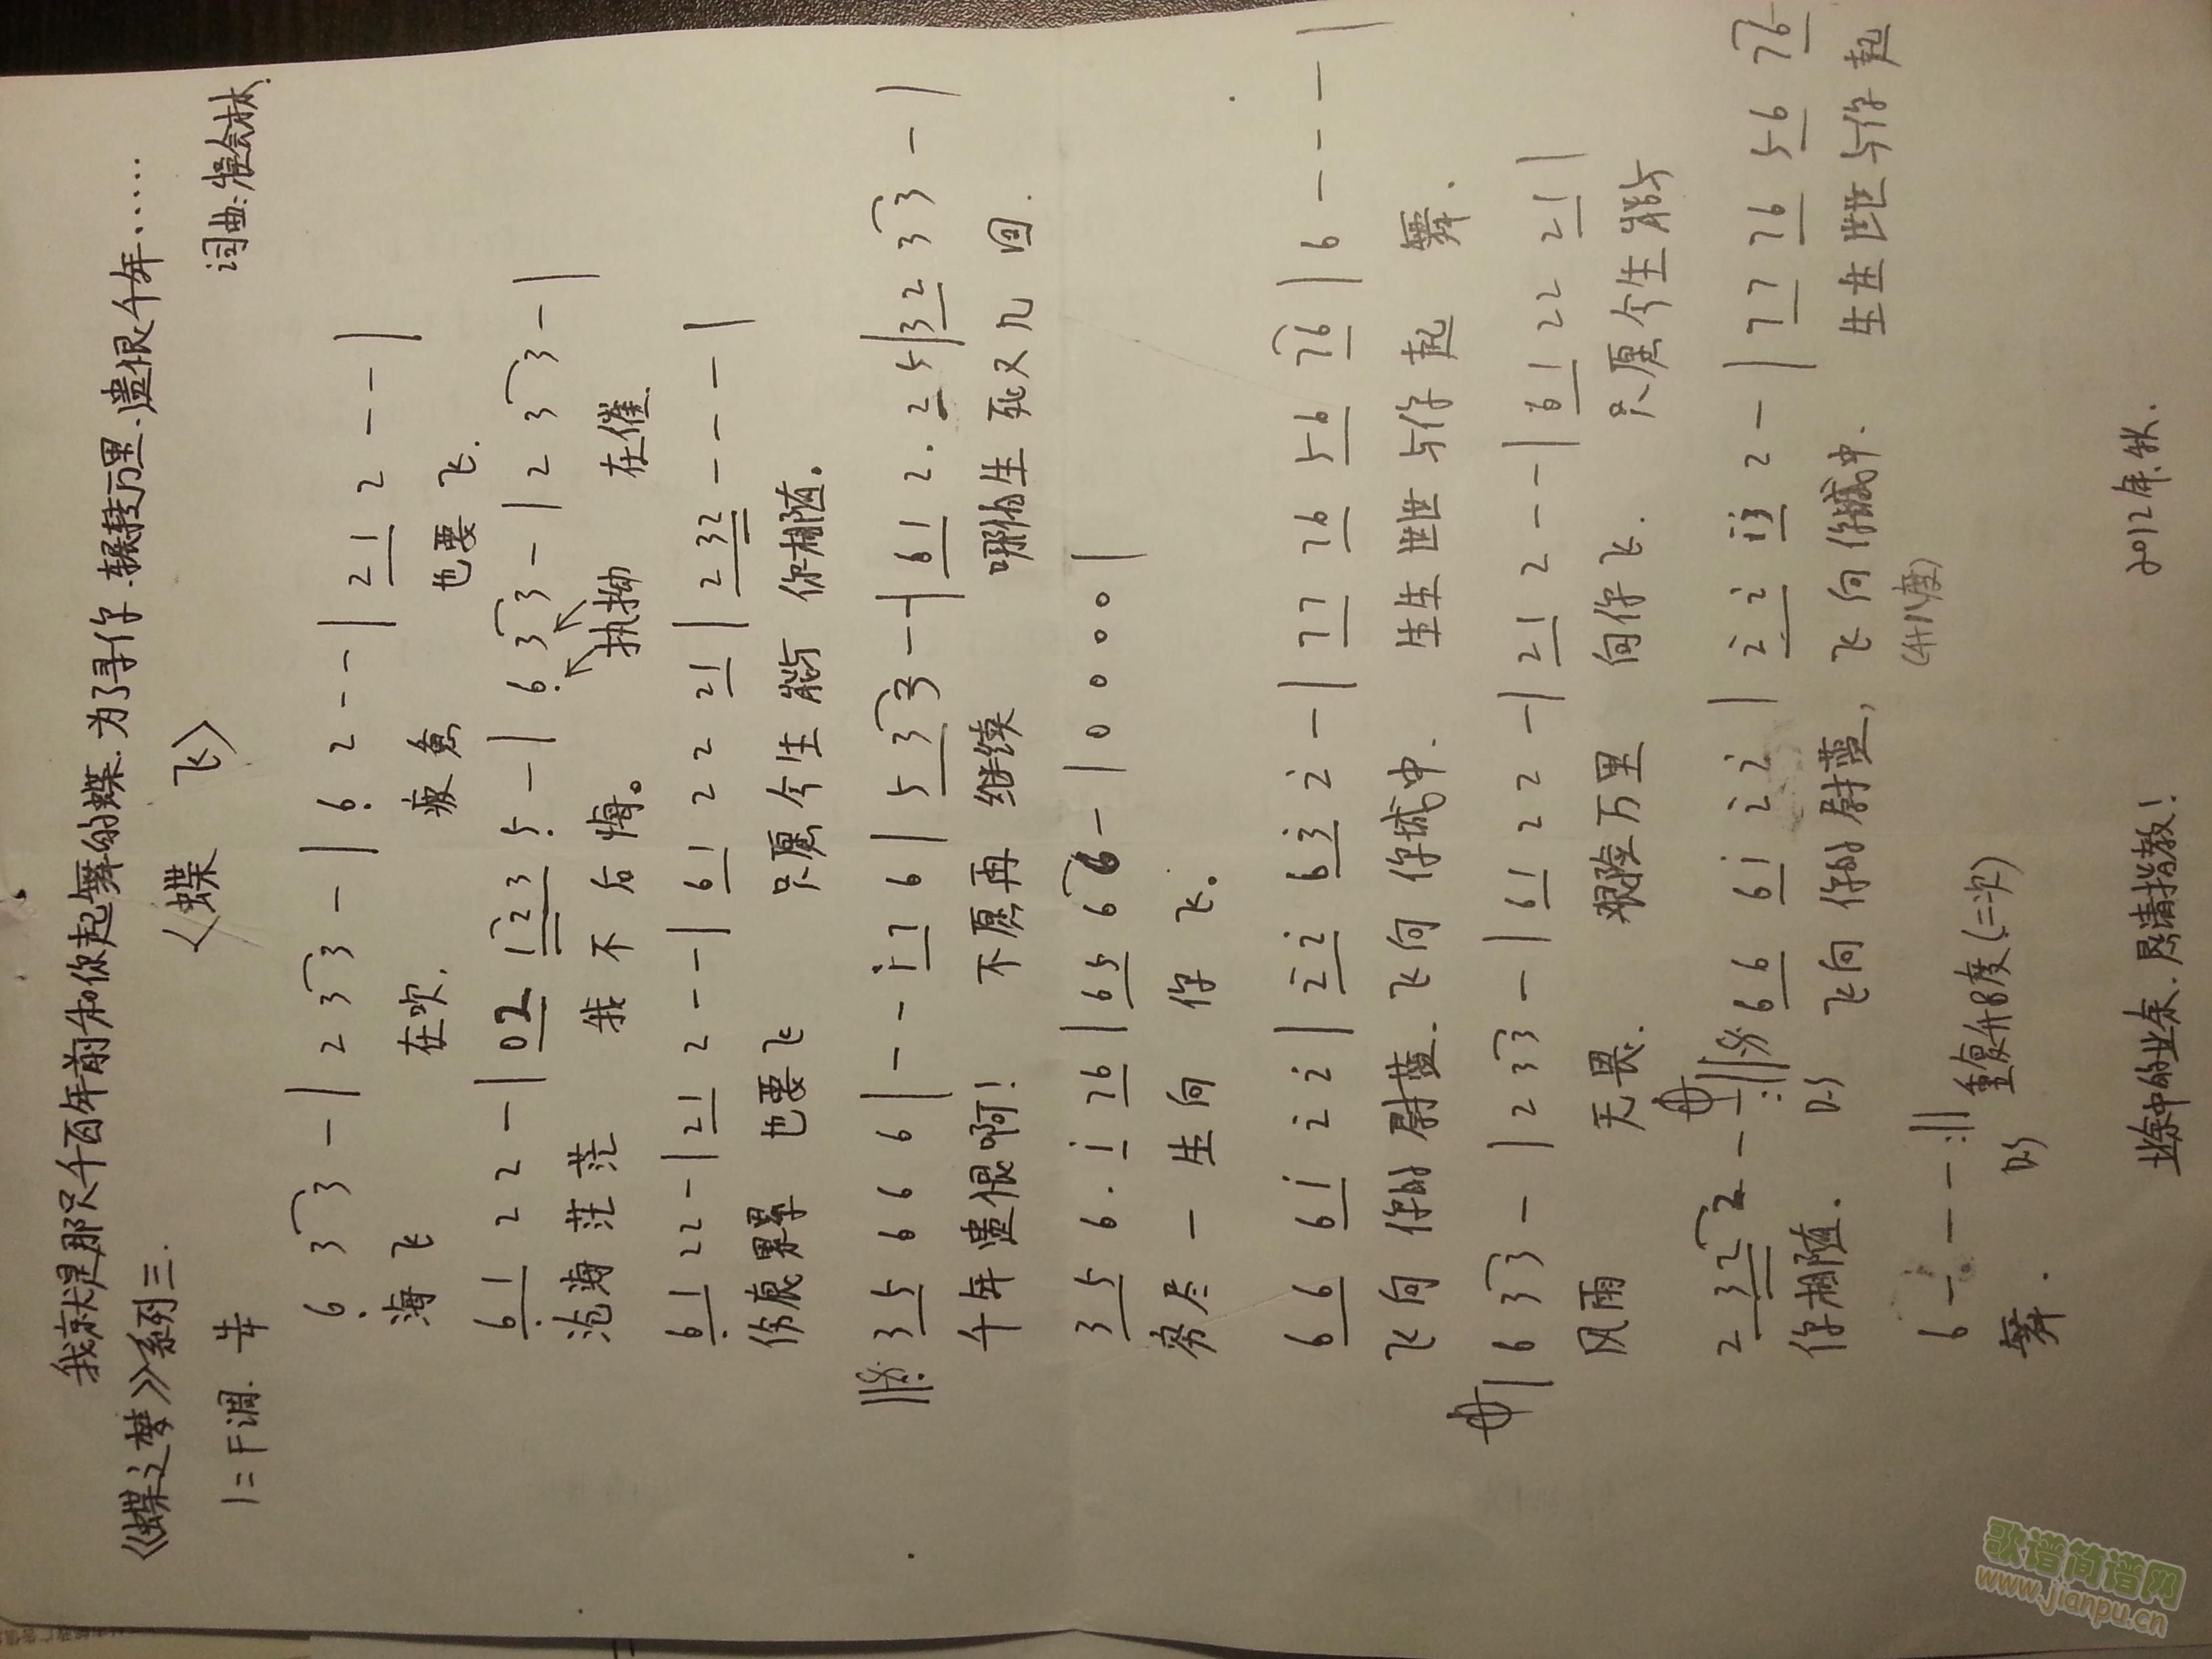 我就是那只千百年前和你起舞的蝶.为了寻你.辗转万里.遗恨千年……
《蝶之梦》系列三.
〈蝶 飞〉
1=F调. 
词曲:
6 3 3 - | 2 3 3 - | 6 2 - - | 2 1 2 - - |
海飞 在吹. 疲惫 也要 飞.
6 1 2 2 - | 0 2 1 2 3 5 - | 6 3 3 - | 2 3 3 - |
沧海茫茫 我不后悔。 执拗 在催.
6 1 2 2 - | 2 1 2 - - | 6 1 2 2 2 1 | 2 3 2 - - - |
伤痕累累 也要飞 只愿今生能与 你相随。
3 5 6 6 6 | - - i 7 6 | 5 3 3 - - | 6 1 2 . 2 5 | 3 2 3 3 - |
千年遗恨啊! 不愿再 继续 哪怕生死又几 回.
3 5 6 . i 7 6 | 6 5 6 6 - | 0 0 0 0 |
穷尽一生向 你 飞。
6 6 6 i 2 2 | 2 2 6 3 2 - | 7 7 7 6 5 6 7 6 | 6 - - - |
飞向你的尉蓝.飞向你城中. 生生世世与你起 舞.
| 6 3 3 - | 2 3 3 - | 6 1 2 2 - | 2 1 2 - - | 6 1 2 2 2 1 |
风雨 无畏. 艰险万里 向你飞. 只愿今生能与
2 3 2 2 - - :|| 6 6 6 i 2 2 | 2 2 i 3 2 - | 7 7 7 6 5 6 7 6
你相随. DS 飞向你的尉蓝, 飞向你城中. 生生世世与你起
(升八度)
6 - - - :|| 重复升8度(二次)
舞. DS
业余中的业余.恳请指教! 2012年.秋.
歌谱简谱网
www.jianpu.cn